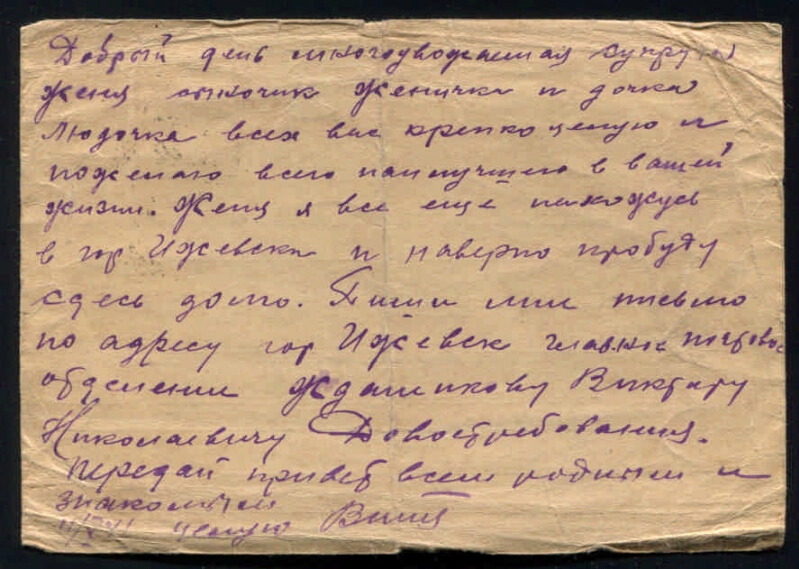 Добрый день многоуважаемая супруга
Женя сыночик Женичка и дочка
Людочка всех вас крепко целую и
пожелаю всего наилучшего в вашей
жизни. Женя я все ещё нахожусь
в гор Ижевски и наверно пробуду
сдесь долго. Пиши мне письмо
по адресу гор Ижевск главное почтовое
отделении Жданникову Виктару
Николаевичу Довостребования.
Передай привет всем родным и
знакомым
целую Витя